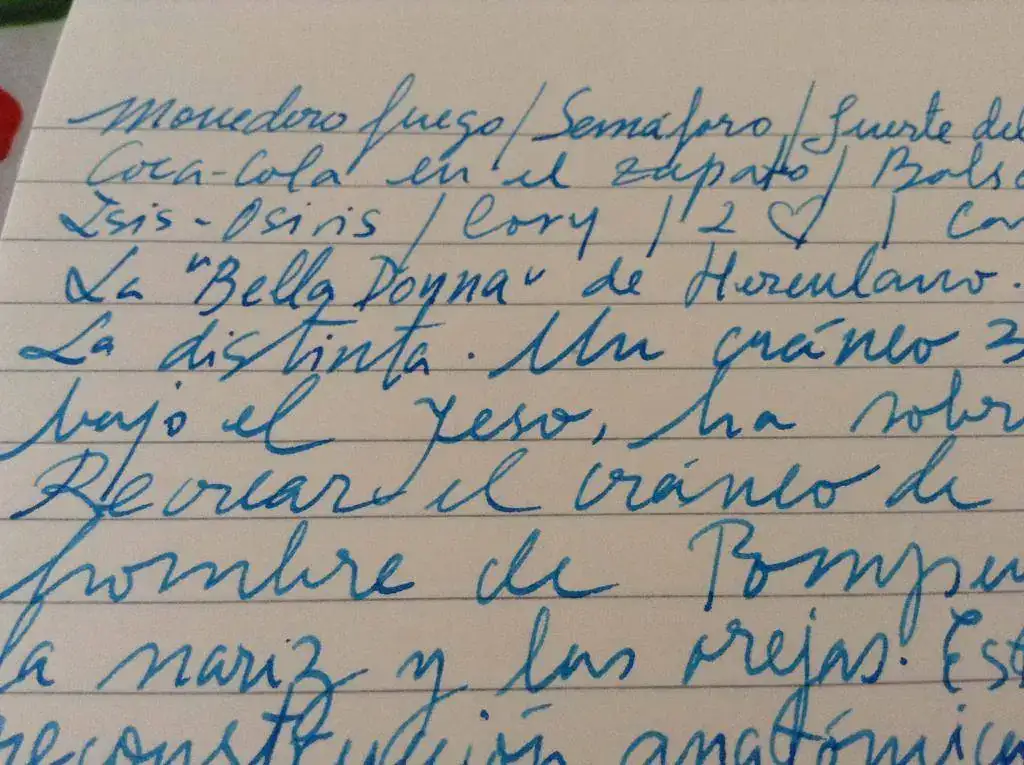 Monedero fuego / Semáforo / Suerte del
Coca-Cola en el zapato / Bols
Isis-Osiris / Cory / 2 ♡ / Car
La "Bella Donna" de Herculano.
La distinta. Un cráneo 3
bajo el yeso, ha sobr
Recrear el cráneo de
hombre de Pompe
la nariz y las orejas. Est
reconstitución anatómica